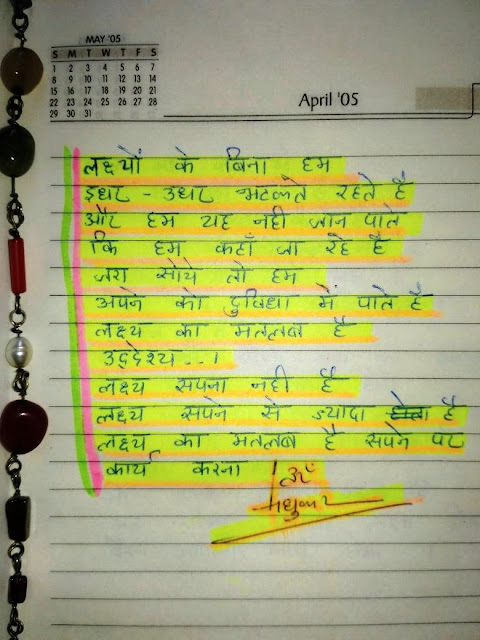 MAY '05
S M T W T F S
1 2 3 4 5 6 7
8 9 10 11 12 13 14
15 16 17 18 19 20 21
22 23 24 25 26 27 28
29 30 31
April '05
लक्ष्यों के बिना हम
इधर - उधर भटकते रहते है
और हम यह नही जान पाते
कि हम कहाँ जा रहे है
जरा सोचे तो हम
अपने को दुविधा में पाते है
लक्ष्य का मतलब है
उद्देश्य - - ।
लक्ष्य सपना नही है
लक्ष्य सपने से ज्यादा है
लक्ष्य का मतलब है सपने पर
कार्य करना